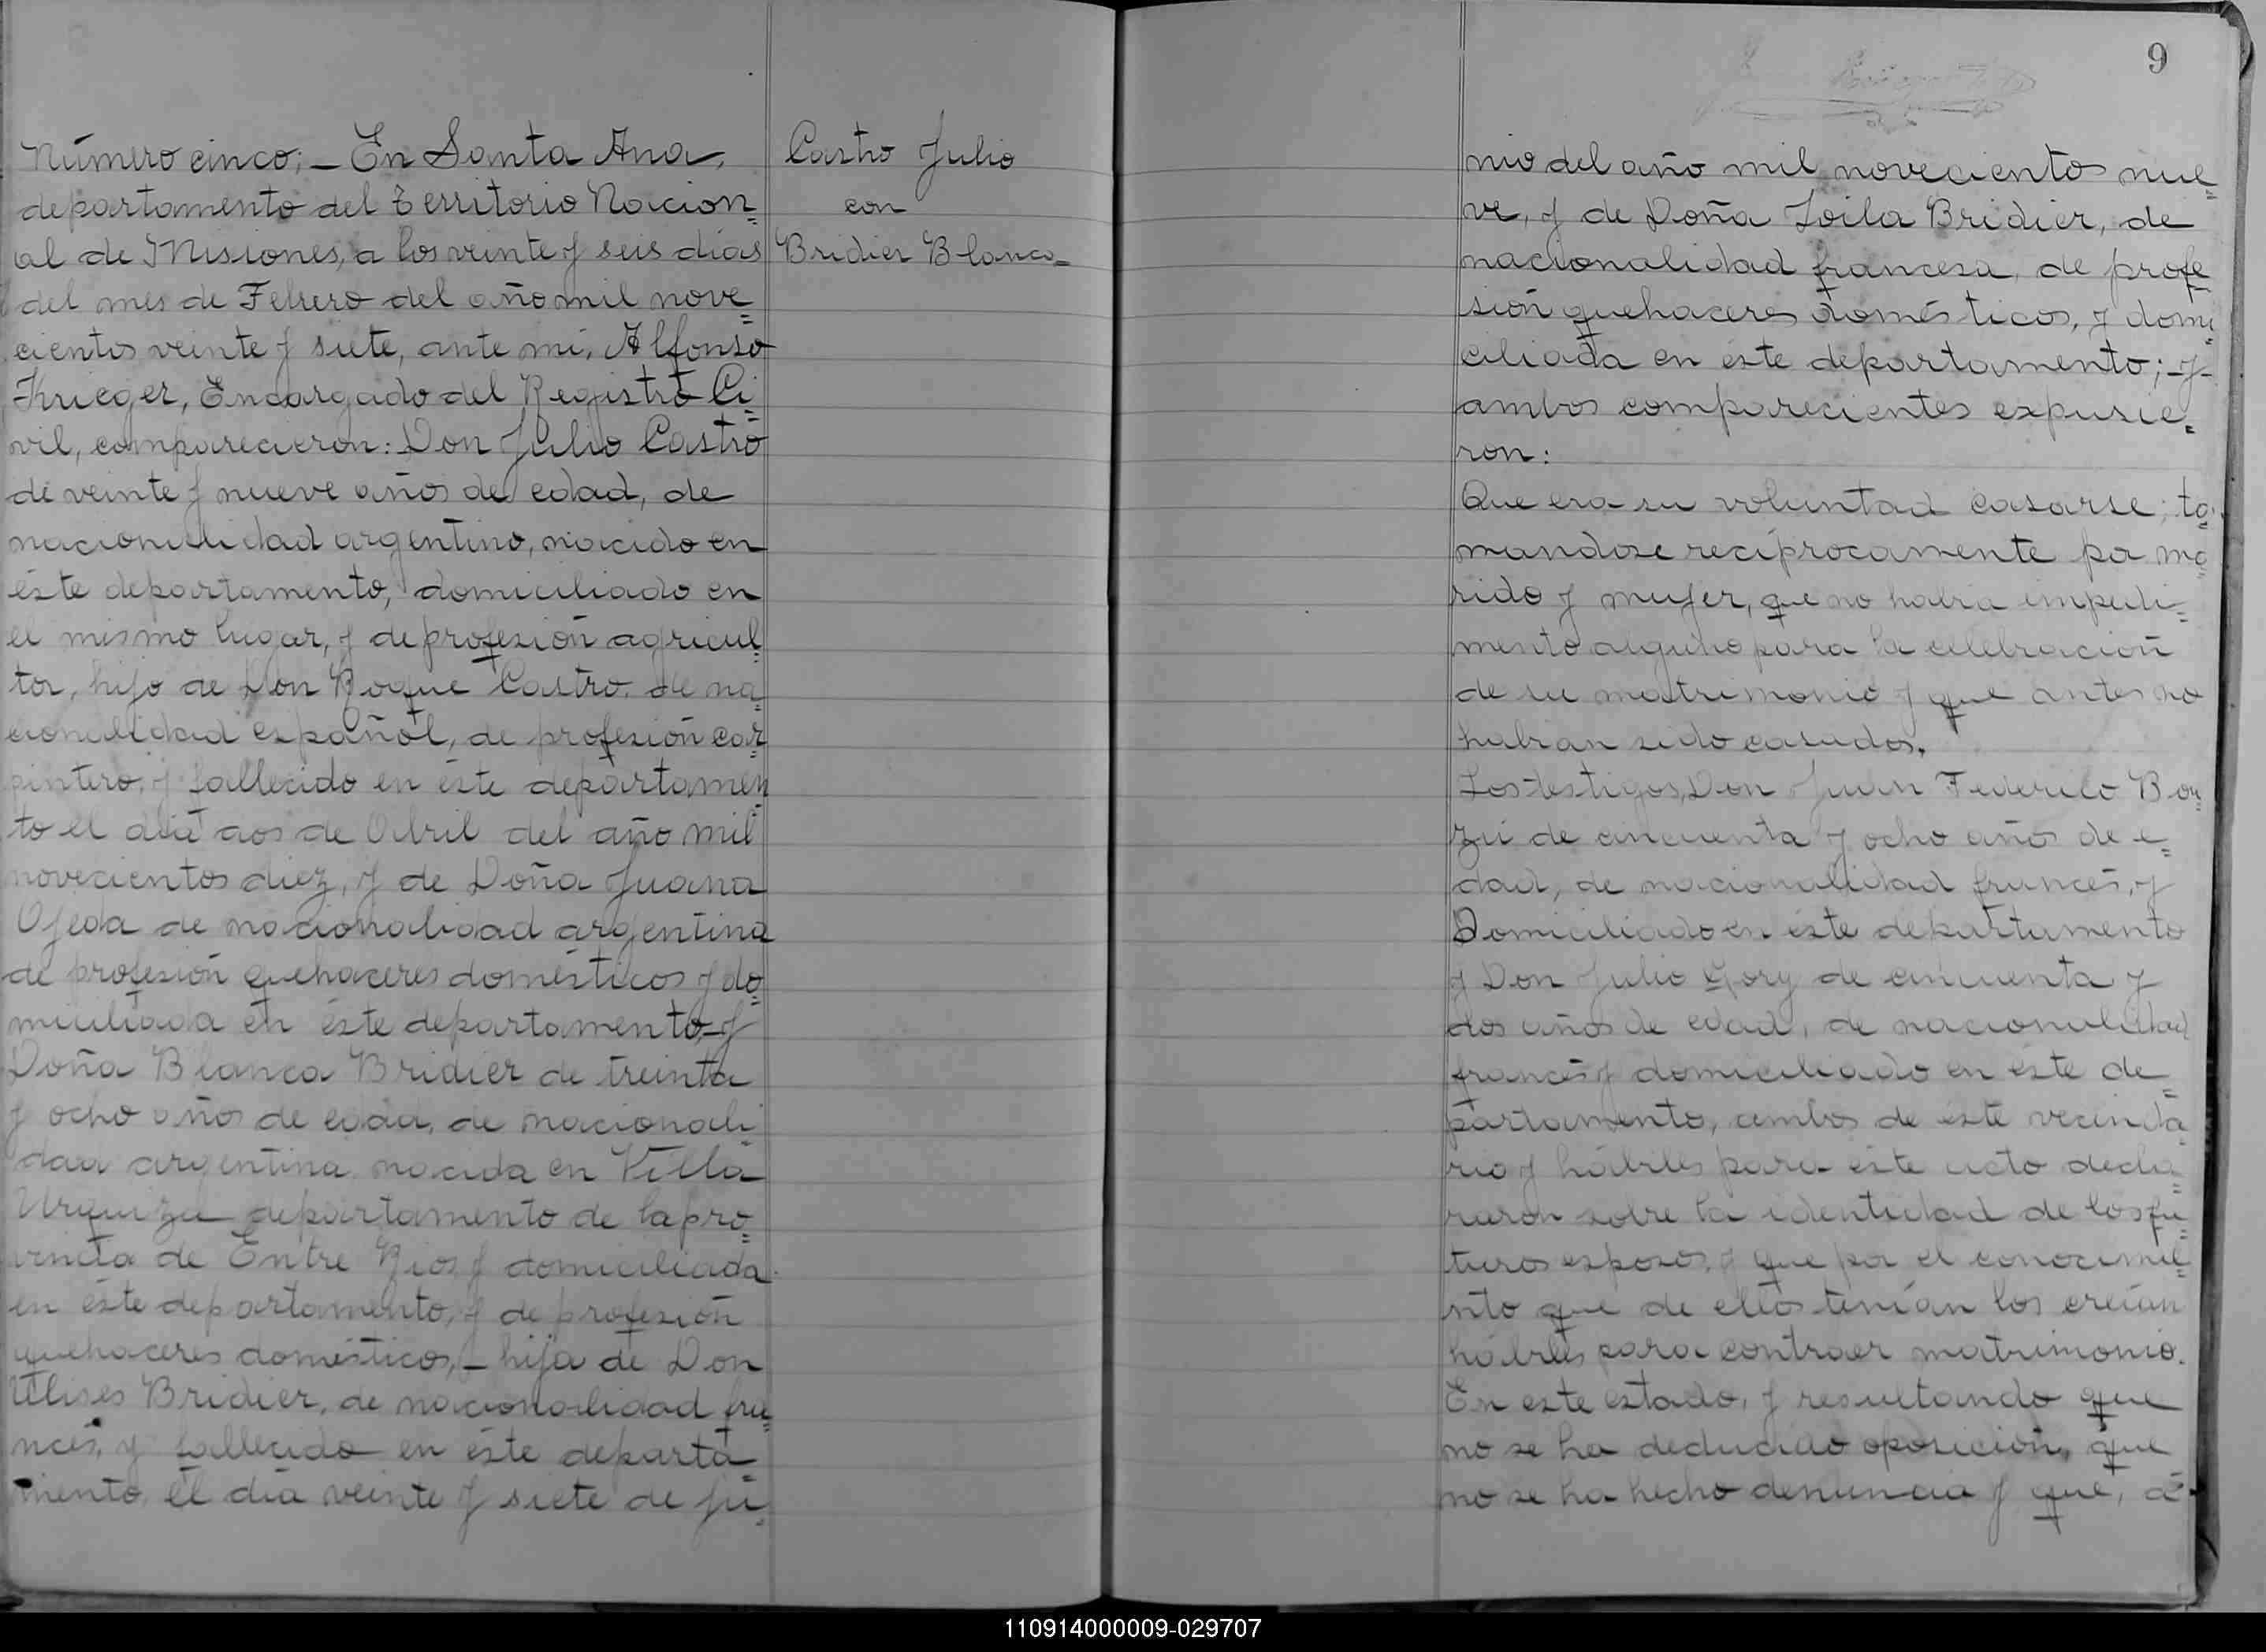 Número cinco; — En Santa Ana,
departamento del Territorio Nacion=
al de Misiones, a los veinte y seis días
del mes de Febrero del año mil nove=
cientos veinte y siete, ante mí, Alfonso
Krieger, Encargado del Registro Ci=
vil, comparecieron: Don Julio Castro
de veinte y nueve años de edad, de
nacionalidad argentino, nacido en
éste departamento, domiciliado en
el mismo lugar, y de profesión agricul=
tor, hijo de Don Roque Castro, de na=
cionalidad español, de profesión car=
pintero, y fallecido en éste departamen=
to el día dos de Abril del año mil
novecientos diez, y de Doña Juana
Ojeda de nacionalidad argentina
de profesión quehaceres domésticos y do=
miciliada en éste departamento y
Doña Blanca Bridier de treinta
y ocho años de edad, de nacionali=
dad argentina nacida en Villa
Urquiza departamento de la pro=
vincia de Entre Rios y domiciliada
en éste departamento, y de profesión
quehaceres domésticos, — hija de Don
Ulises Bridier, de nacionalidad fra=
ncés, y fallecido en éste departa=
mento, el día veinte y siete de ju=
Castro Julio
con
Bridier Blanca=
9
nio del año mil novecientos nue=
ve, y de Doña Zoila Bridier, de
nacionalidad francesa, de profe=
sión quehaceres domésticos, y domi=
ciliada en éste departamento; — y —
ambos comparecientes expusie=
ron:
Que era su voluntad casarse; to=
mandose recíprocamente por ma=
rido y mujer, que no había impedi=
mento alguno para la celebración
de su matrimonio y que antes no
habían sido casados.
Los testigos, Don Juan Federico Bou=
zui de cincuenta y ocho años de e=
dad, de nacionalidad francés, y
Domiciliado en éste departamento
y Don Julio Gory de cincuenta y
dos años de edad, de nacionalidad
francés y domiciliado en éste de=
partamento, ambos de éste vecinda=
rio y hábiles para éste acto decla=
raron sobre la identidad de los fu=
turos esposos, y que por el conocimie=
nto que de ellos tenían los creían
hábiles para contraer matrimonio.
En este estado, y resultando que
no se ha deducido oposición, que
no se ha hecho denuncia y que, á
110914000009-029707